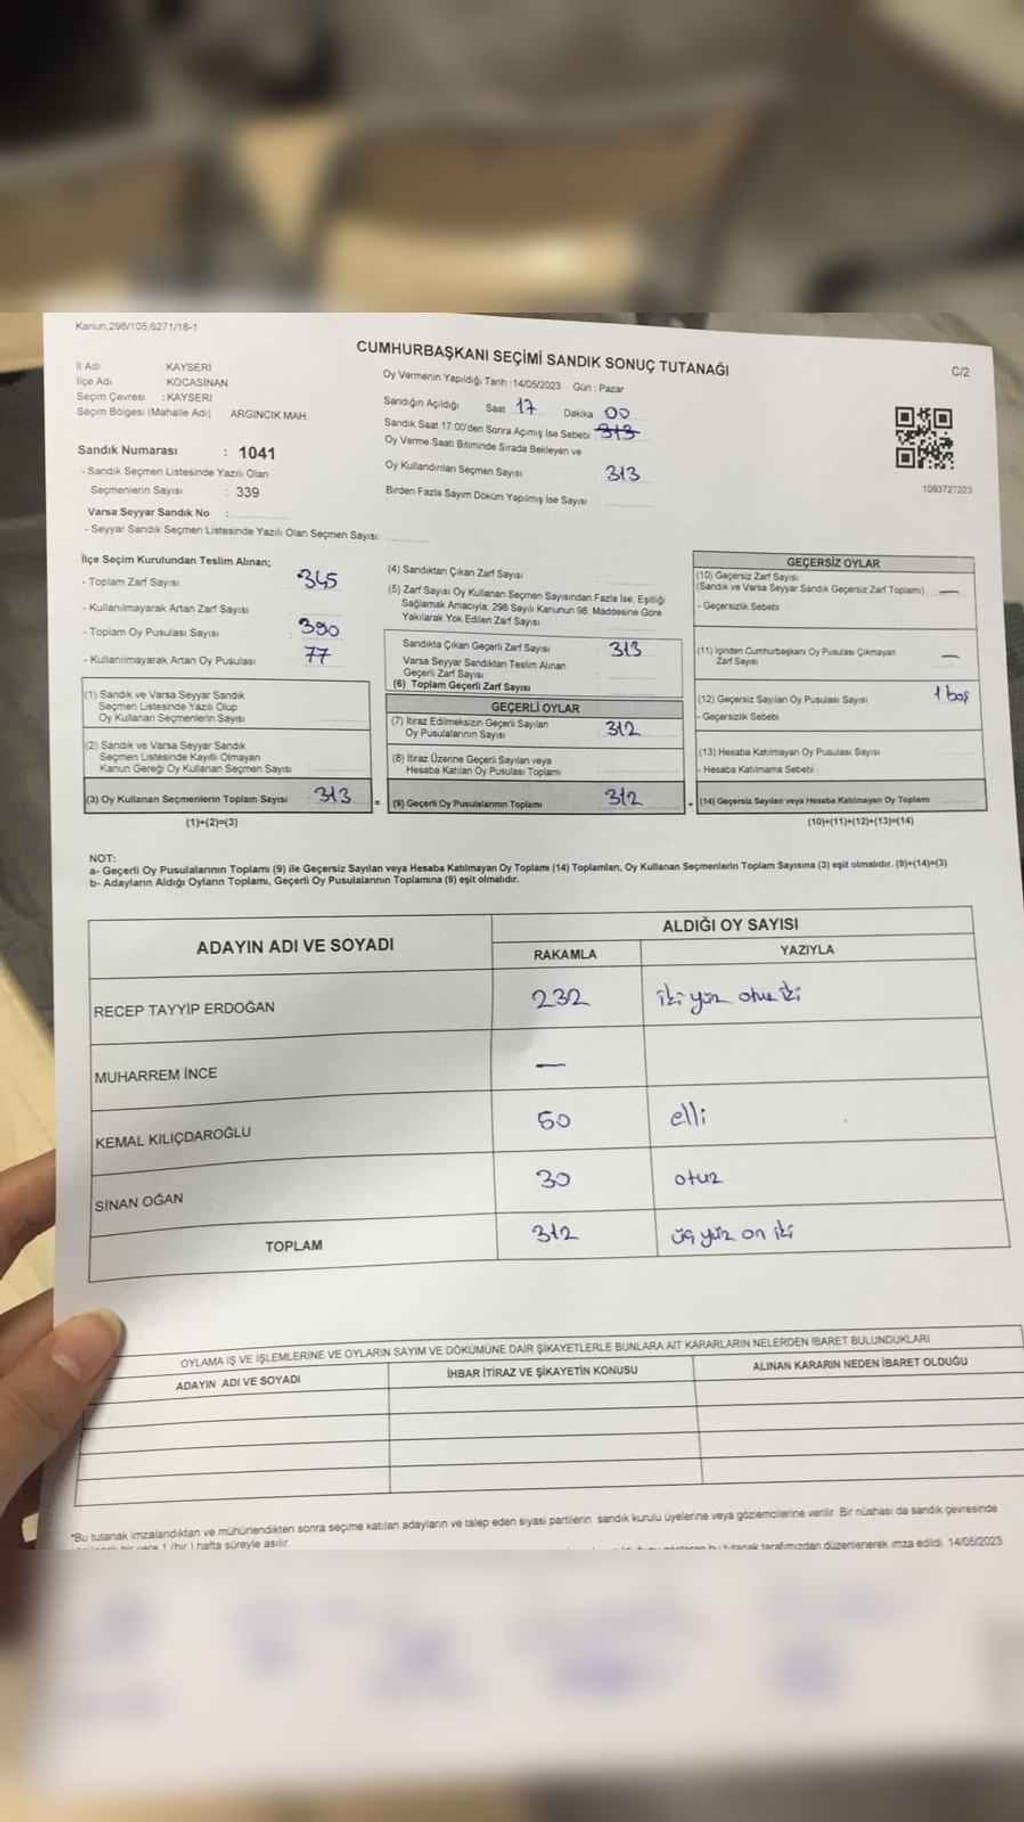 Kanun:298/105,6271/18-1
CUMHURBAŞKANI SEÇİMİ SANDIK SONUÇ TUTANAĞI
C/2
İl Adı KAYSERİ
İlçe Adı KOCASİNAN
Seçim Çevresi : KAYSERİ
Seçim Bölgesi (Mahalle Adı) ARGINCIK MAH.
Oy Vermenin Yapıldığı Tarih :14/05/2023 Gün : Pazar
Sandığın Açıldığı Saat 17 Dakika 00
Sandık Saat 17:00'den Sonra Açımış İse Sebebi 313
Oy Verme Saati Bitiminde Sırada Bekleyen ve
Oy Kullandırılan Seçmen Sayısı 313
Birden Fazla Sayım Döküm Yapılmış İse Sayısı
1093727323
Sandık Numarası : 1041
- Sandık Seçmen Listesinde Yazılı Olan
Seçmenlerin Sayısı : 339
Varsa Seyyar Sandık No :
- Seyyar Sandık Seçmen Listesinde Yazılı Olan Seçmen Sayısı:
İlçe Seçim Kurulundan Teslim Alınan;
- Toplam Zarf Sayısı 345
- Kullanılmayarak Artan Zarf Sayısı
- Toplam Oy Pusulası Sayısı : 390
- Kullanılmayarak Artan Oy Pusulası 77
(1) Sandık ve Varsa Seyyar Sandık
Seçmen Listesinde Yazılı Olup
Oy Kullanan Seçmenlerin Sayısı
(2) Sandık ve Varsa Seyyar Sandık
Seçmen Listesinde Kayıtlı Olmayan
Kanun Gereği Oy Kullanan Seçmen Sayısı
(3) Oy Kullanan Seçmenlerin Toplam Sayısı 313
(1)+(2)=(3)
(4) Sandıktan Çıkan Zarf Sayısı
(5) Zarf Sayısı Oy Kullanan Seçmen Sayısından Fazla İse, Eşitliği
Sağlamak Amacıyla; 298 Sayılı Kanunun 98. Maddesine Göre
Yakılarak Yok Edilen Zarf Sayısı
Sandıkta Çıkan Geçerli Zarf Sayısı 313
Varsa Seyyar Sandıktan Teslim Alınan
Geçerli Zarf Sayısı
(6) Toplam Geçerli Zarf Sayısı
GEÇERLİ OYLAR
(7) İtiraz Edilmeksizin Geçerli Sayılan
Oy Pusulalarının Sayısı 312
(8) İtiraz Üzerine Geçerli Sayılan veya
Hesaba Katılan Oy Pusulası Toplamı
= (9) Geçerli Oy Pusulalarının Toplamı 312
GEÇERSİZ OYLAR
(10) Geçersiz Zarf Sayısı
(Sandık ve Varsa Seyyar Sandık Geçersiz Zarf Toplamı) —
- Geçersizlik Sebebi
(11) İçinden Cumhurbaşkanı Oy Pusulası Çıkmayan
Zarf Sayısı —
(12) Geçersiz Sayılan Oy Pusulası Sayısı 1 boş
- Geçersizlik Sebebi
(13) Hesaba Katılmayan Oy Pusulası Sayısı
- Hesaba Katılmama Sebebi
(14) Geçersiz Sayılan veya Hesaba Katılmayan Oy Toplamı
(10)+(11)+(12)+(13)=(14)
NOT:
a- Geçerli Oy Pusulalarının Toplamı (9) ile Geçersiz Sayılan veya Hesaba Katılmayan Oy Toplamı (14) Toplamları, Oy Kullanan Seçmenlerin Toplam Sayısına (3) eşit olmalıdır. (9)+(14)=(3)
b- Adayların Aldığı Oyların Toplamı, Geçerli Oy Pusulalarının Toplamına (9) eşit olmalıdır.
ADAYIN ADI VE SOYADI
ALDIĞI OY SAYISI
RAKAMLA YAZIYLA
RECEP TAYYİP ERDOĞAN 232 iki yüz otuz iki
MUHARREM İNCE —
KEMAL KILIÇDAROĞLU 50 elli
SİNAN OĞAN 30 otuz
TOPLAM 312 üç yüz on iki
OYLAMA İŞ VE İŞLEMLERİNE VE OYLARIN SAYIM VE DÖKÜMÜNE DAİR ŞİKAYETLERLE BUNLARA AİT KARARLARIN NELERDEN İBARET BULUNDUKLARI
ADAYIN ADI VE SOYADI İHBAR İTİRAZ VE ŞİKAYETİN KONUSU ALINAN KARARIN NEDEN İBARET OLDUĞU
*Bu tutanak imzalandıktan ve mühürlendikten sonra seçime katılan adayların ve talep eden siyasi partilerin sandık kurulu üyelerine veya gözlemcilerine verilir. Bir nüshası da sandık çevresinde
bir yere 1 (bir) hafta süreyle asılır. bu tutanak tarafımızdan düzenlenerek imza edildi. 14/05/2023